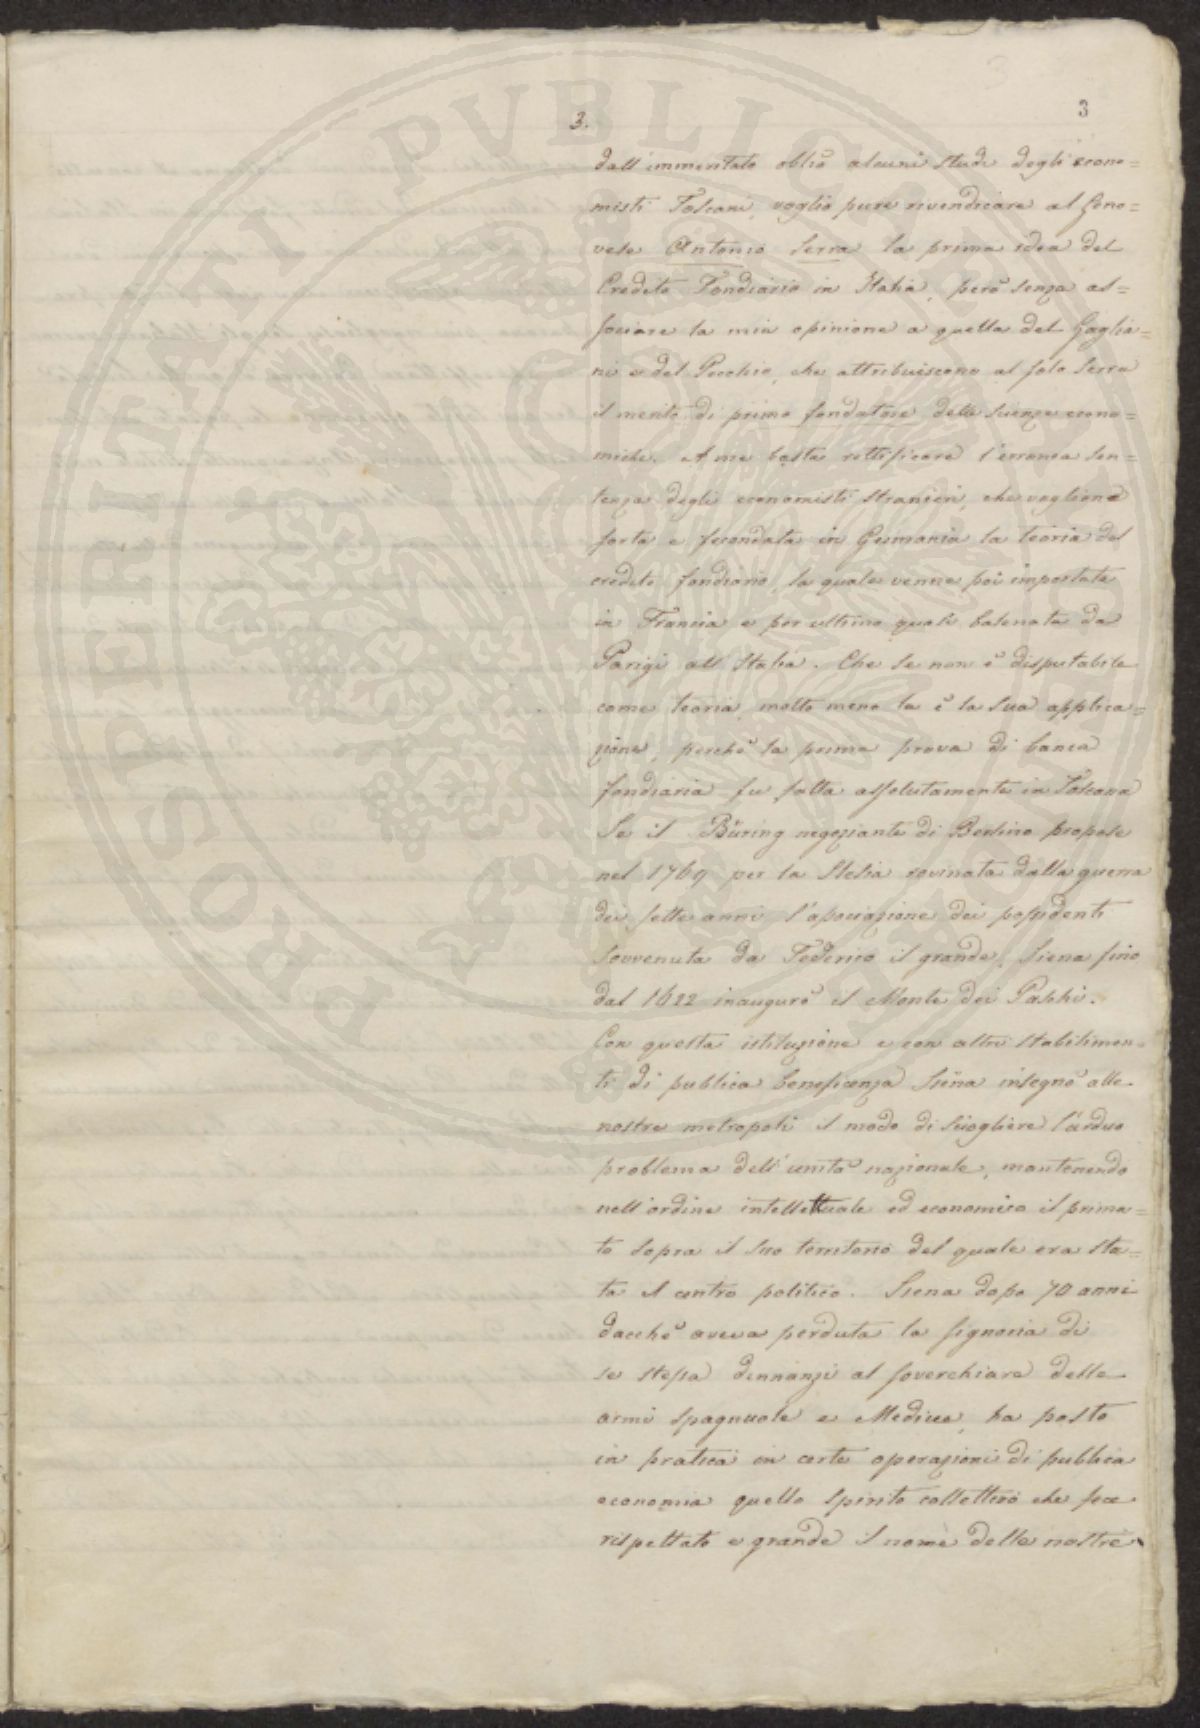 3.
3
dall'immeritato oblio alcuni studi degli econo=
misti Toscani, voglio pure rivendicare al Geno=
vese Antonio Serra la prima idea del
Credito Fondiario in Italia, però senza as=
sociare la mia opinione a quella del Galia=
ni e del Pecchio, che attribuiscono al solo Serra
il merito di primo fondatore delle scienze econo=
miche. A me basta rettificare l'erronea sen=
tenza degli economisti stranieri, che vogliono
sorta e fecondata in Germania la teoria del
credito fondiario, la quale venne poi importata
in Francia e per ultimo quasi balenata da
Parigi all'Italia. Che se non è disputabile
come teoria, molto meno la è la sua applica=
zione, perchè la prima prova di banca
fondiaria fu fatta assolutamente in Toscana
Se il Büring negoziante di Berlino propose
nel 1769 per la Slesia rovinata dalla guerra
dei sette anni l'associazione dei possidenti
sovvenuta da Federico il grande, Siena fino
dal 1622 inaugurò il Monte dei Paschi.
Con questa istituzione e con altri stabilimen=
ti di publica beneficenza Siena insegnò alle
nostre metropoli il modo di sciogliere l'arduo
problema dell'unità nazionale, mantenendo
nell'ordine intellettuale ed economico il prima=
to sopra il suo territorio del quale era sta=
ta il centro politico. Siena dopo 70 anni
dacchè aveva perduta la signoria di
se stessa dinnanzi al soverchiare delle
armi spagnuole e Medicee, ha posto
in pratica in certe operazioni di publica
economia quello spirito collettivo che fece
rispettato e grande il nome delle nostre
PROSPERITATI PVBLICAE